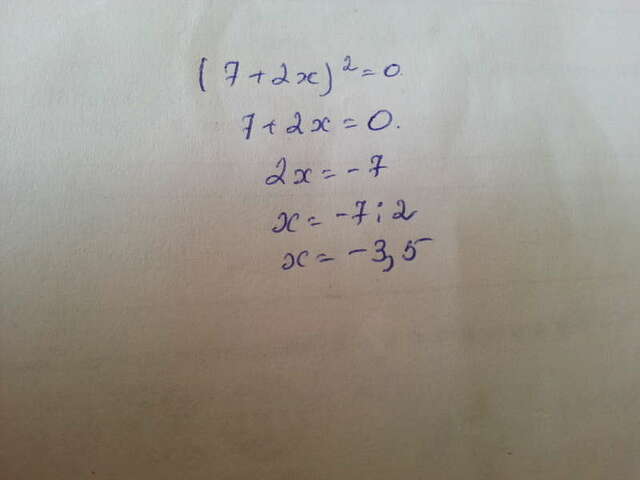 (7+2x)²=0.
7+2x=0.
2x=-7
x=-7:2
x=-3,5